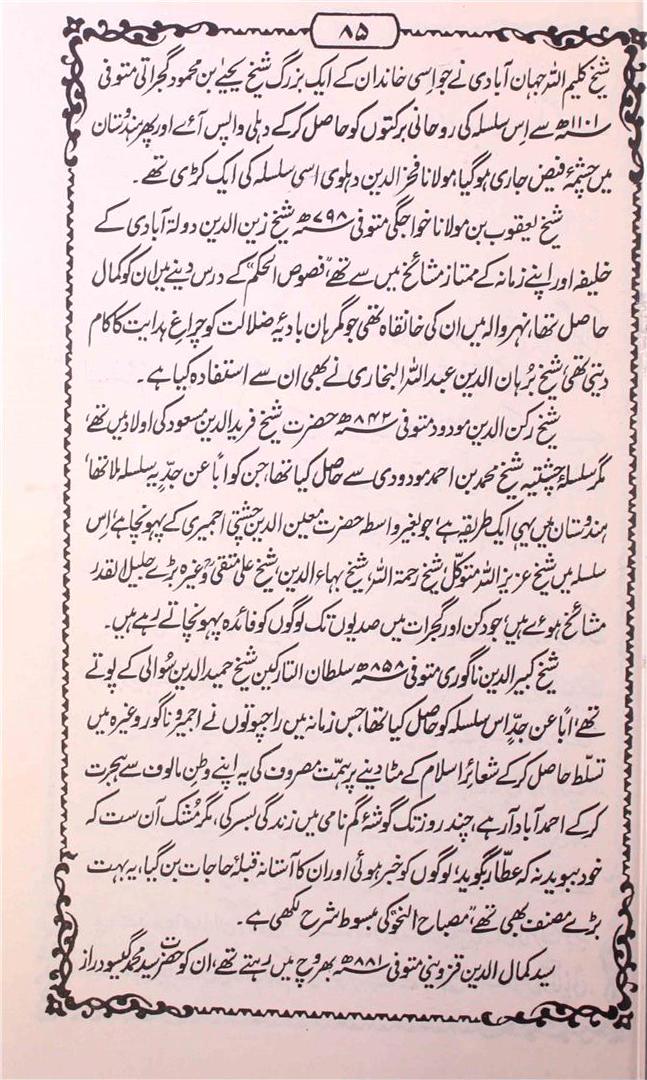 ۸۵
شیخ کلیم اللہ جہان آبادی نے جو اسی خاندان کے ایک بزرگ شیخ یحییٰ بن محمود گجراتی متوفی
۱۱۰۱ھ سے اِس سلسلہ کی روحانی برکتوں کو حاصل کرکے دہلی واپس آئے اور پھر ہندوستان
میں چشمۂ فیض جاری ہوگیا، مولانا فخر الدین دہلوی اسی سلسلہ کی ایک کڑی تھے۔
شیخ یعقوب بن مولانا خواجگی متوفی ۷۹۸ھ شیخ زین الدین دولۃ آبادی کے
خلیفہ اور اپنے زمانہ کے ممتاز مشائخ میں سے تھے، "فصوص الحکم" کے درس دینے میں ان کو کمال
حاصل تھا، نہروالہ میں ان کی خانقاہ تھی جو گمرہان بادیۂ ضلالت کو چراغِ ہدایت کا کام
دیتی تھی، شیخ بُرہان الدین عبد اللہ البخاری نے بھی ان سے استفادہ کیا ہے۔
شیخ رکن الدین مودود متوفی ۸۴۲ھ حضرت شیخ فرید الدین مسعود کی اولاد میں تھے،
مگر سلسلۂ چشتیہ شیخ محمد بن احمد مودودی سے حاصل کیا تھا، جن کو اباً عن جدٍّ یہ سلسلہ ملا تھا،
ہندوستان میں یہی ایک طریقہ ہے، جو بغیر واسطہ حضرت معین الدین چشتی اجمیری کے پہونچا ہے، اس
سلسلہ میں شیخ عزیز اللہ متوکل، شیخ رحمۃ اللہ، شیخ بہاء الدین، شیخ علی متقی وغیرہ بڑے جلیل القدر
مشائخ ہوئے ہیں، جو دکن اور گجرات میں صدیوں تک لوگوں کو فائدہ پہونچاتے رہے ہیں۔
شیخ کبیر الدین ناگوری متوفی ۸۵۸ھ سلطان التارکین شیخ حمید الدین سُوالی کے پوتے
تھے، اباً عن جدٍّ اس سلسلہ کو حاصل کیا تھا، جس زمانہ میں راجپوتوں نے اجمیر و ناگور وغیرہ میں
تسلّط حاصل کرکے شعائرِ اسلام کے مٹا دینے پر ہمّت مصروف کی یہ اپنے وطنِ مالوف سے ہجرت
کرکے احمدآباد آرہے، چند روز تک گوشۂ گم نامی میں زندگی بسر کی، مگر مُشک آن ست کہ
خود ببوید نہ کہ عطّار بگوید، لوگوں کو خبر ہوئی اور ان کا آستانہ قبلۂ حاجات بن گیا، یہ بہت
بڑے مصنف بھی تھے، "مصباح النحو" کی مبسوط شرح لکھی ہے۔
سید کمال الدین قزوینی متوفی ۸۸۱ھ بھروچ میں رہتے تھے، ان کو حضرت سید محمد گیسودراز